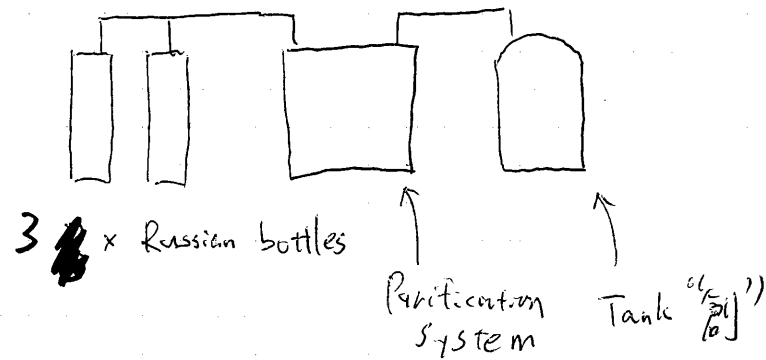 3 x Russian bottles
Purification
system
Tank “副”